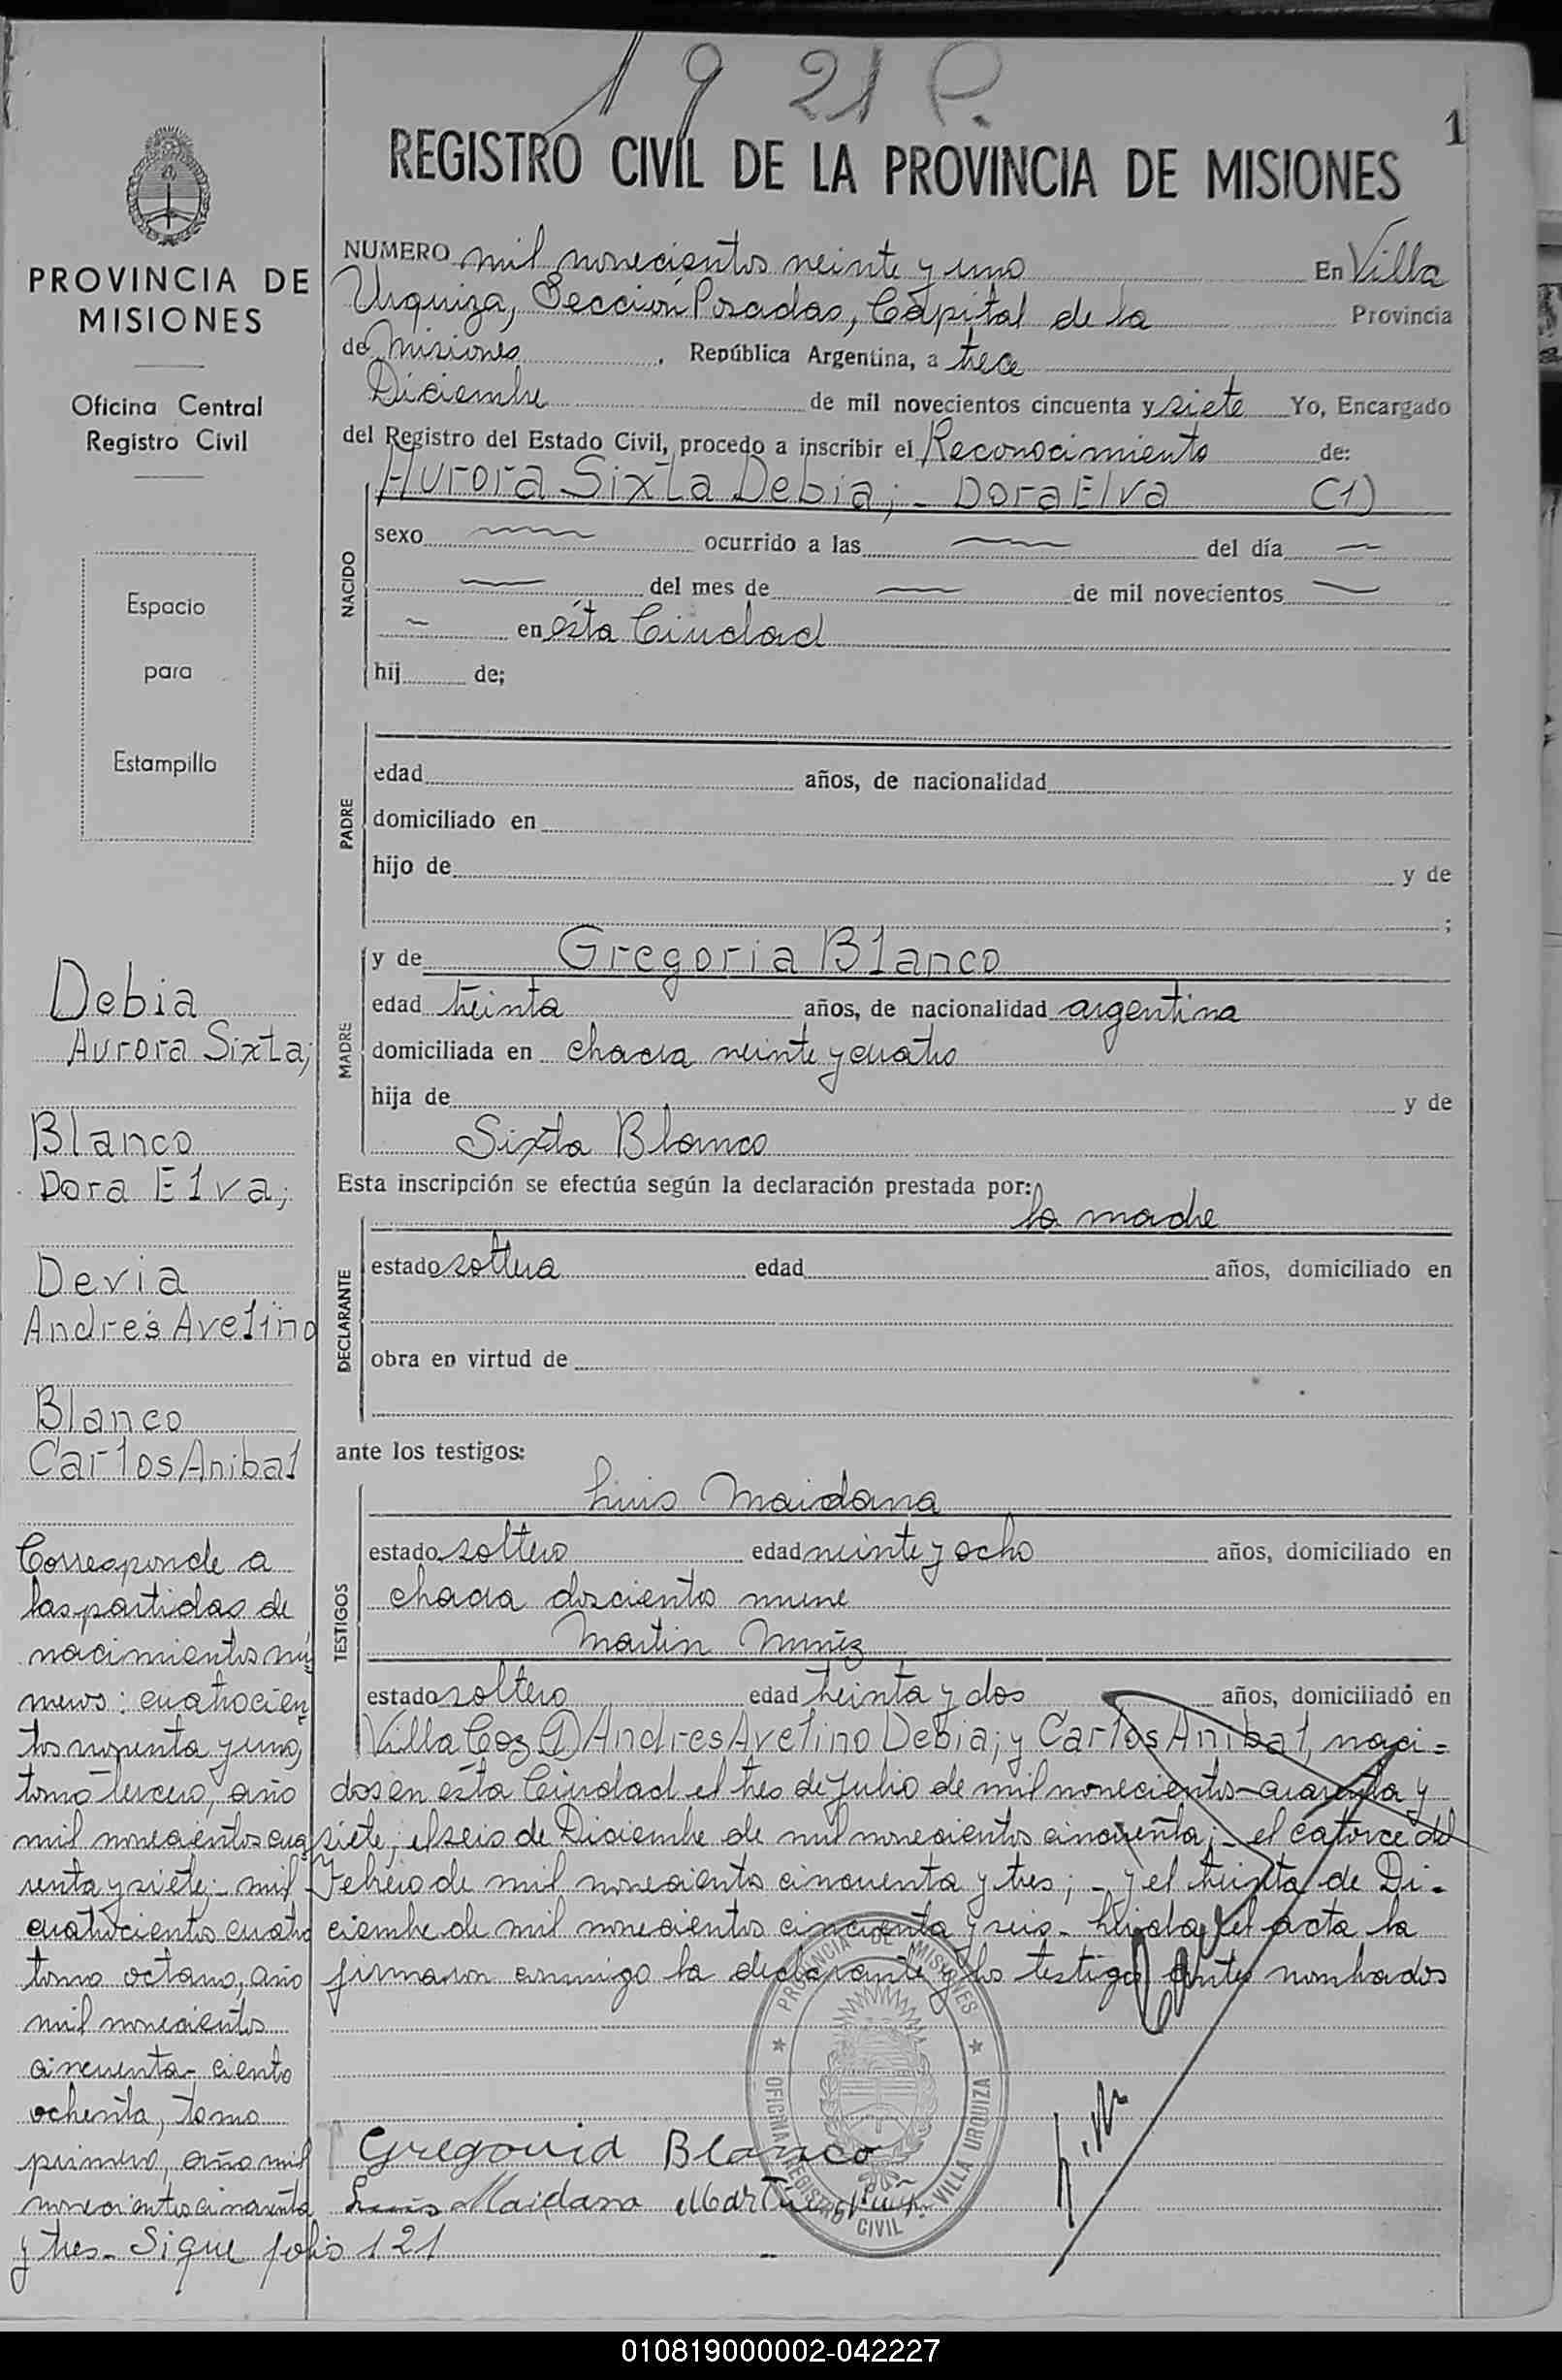 1921 P.
1
REGISTRO CIVIL DE LA PROVINCIA DE MISIONES
PROVINCIA DE
MISIONES
Oficina Central
Registro Civil
Espacio
para
Estampilla
Debia
Aurora Sixta;
Blanco
Dora Elva;
Devia
Andrés Avelino
Blanco
Carlos Anibal
Corresponde a
las partidas de
nacimientos nú
meros: cuatrocien
tos noventa y uno,
tomo tercero, año
mil novecientos cua
renta y siete;- mil
cuatrocientos cuatro
tomo octavo, año
mil novecientos
cincuenta- ciento
ochenta, tomo
primero, año mil
novecientos cincuenta
y tres- Sigue folio 121
NUMERO mil novecientos veinte y uno En Villa
Urquiza, Sección Posadas, Capital de la Provincia
de Misiones, República Argentina, a trece
Diciembre de mil novecientos cincuenta y siete Yo, Encargado
del Registro del Estado Civil, procedo a inscribir el Reconocimiento de:
Aurora Sixta Debia;- Dora Elva (1)
NACIDO
sexo ocurrido a las del día
del mes de de mil novecientos
en ésta Ciudad
hij de;
PADRE
edad años, de nacionalidad
domiciliado en
hijo de y de
;
MADRE
y de Gregoria Blanco
edad treinta años, de nacionalidad argentina
domiciliada en chacra veinte y cuatro
hija de y de
Sixta Blanco
Esta inscripción se efectúa según la declaración prestada por:
la madre
DECLARANTE
estado soltera edad años, domiciliado en
obra en virtud de
ante los testigos:
TESTIGOS
Luis Maidana
estado soltero edad veinte y ocho años, domiciliado en
chacra doscientos nueve
Martin Nuñez
estado soltero edad treinta y dos años, domiciliado en
Villa Coz (1) Andres Avelino Debia; y Carlos Anibal, naci=
dos en esta Ciudad el tres de Julio de mil novecientos cuarenta y
siete; el seis de Diciembre de mil novecientos cincuenta;- el catorce del
Febrero de mil novecientos cincuenta y tres;- y el treinta de Di-
ciembre de mil novecientos cincuenta y seis- Leida el acta la
firmaron conmigo la declarante y los testigos antes nombrados
Gregoria Blanco
Luis Maidana Martin Nuñez
PROVINCIA DE MISIONES
OFICINA REGISTRO CIVIL - VILLA URQUIZA
010819000002-042227